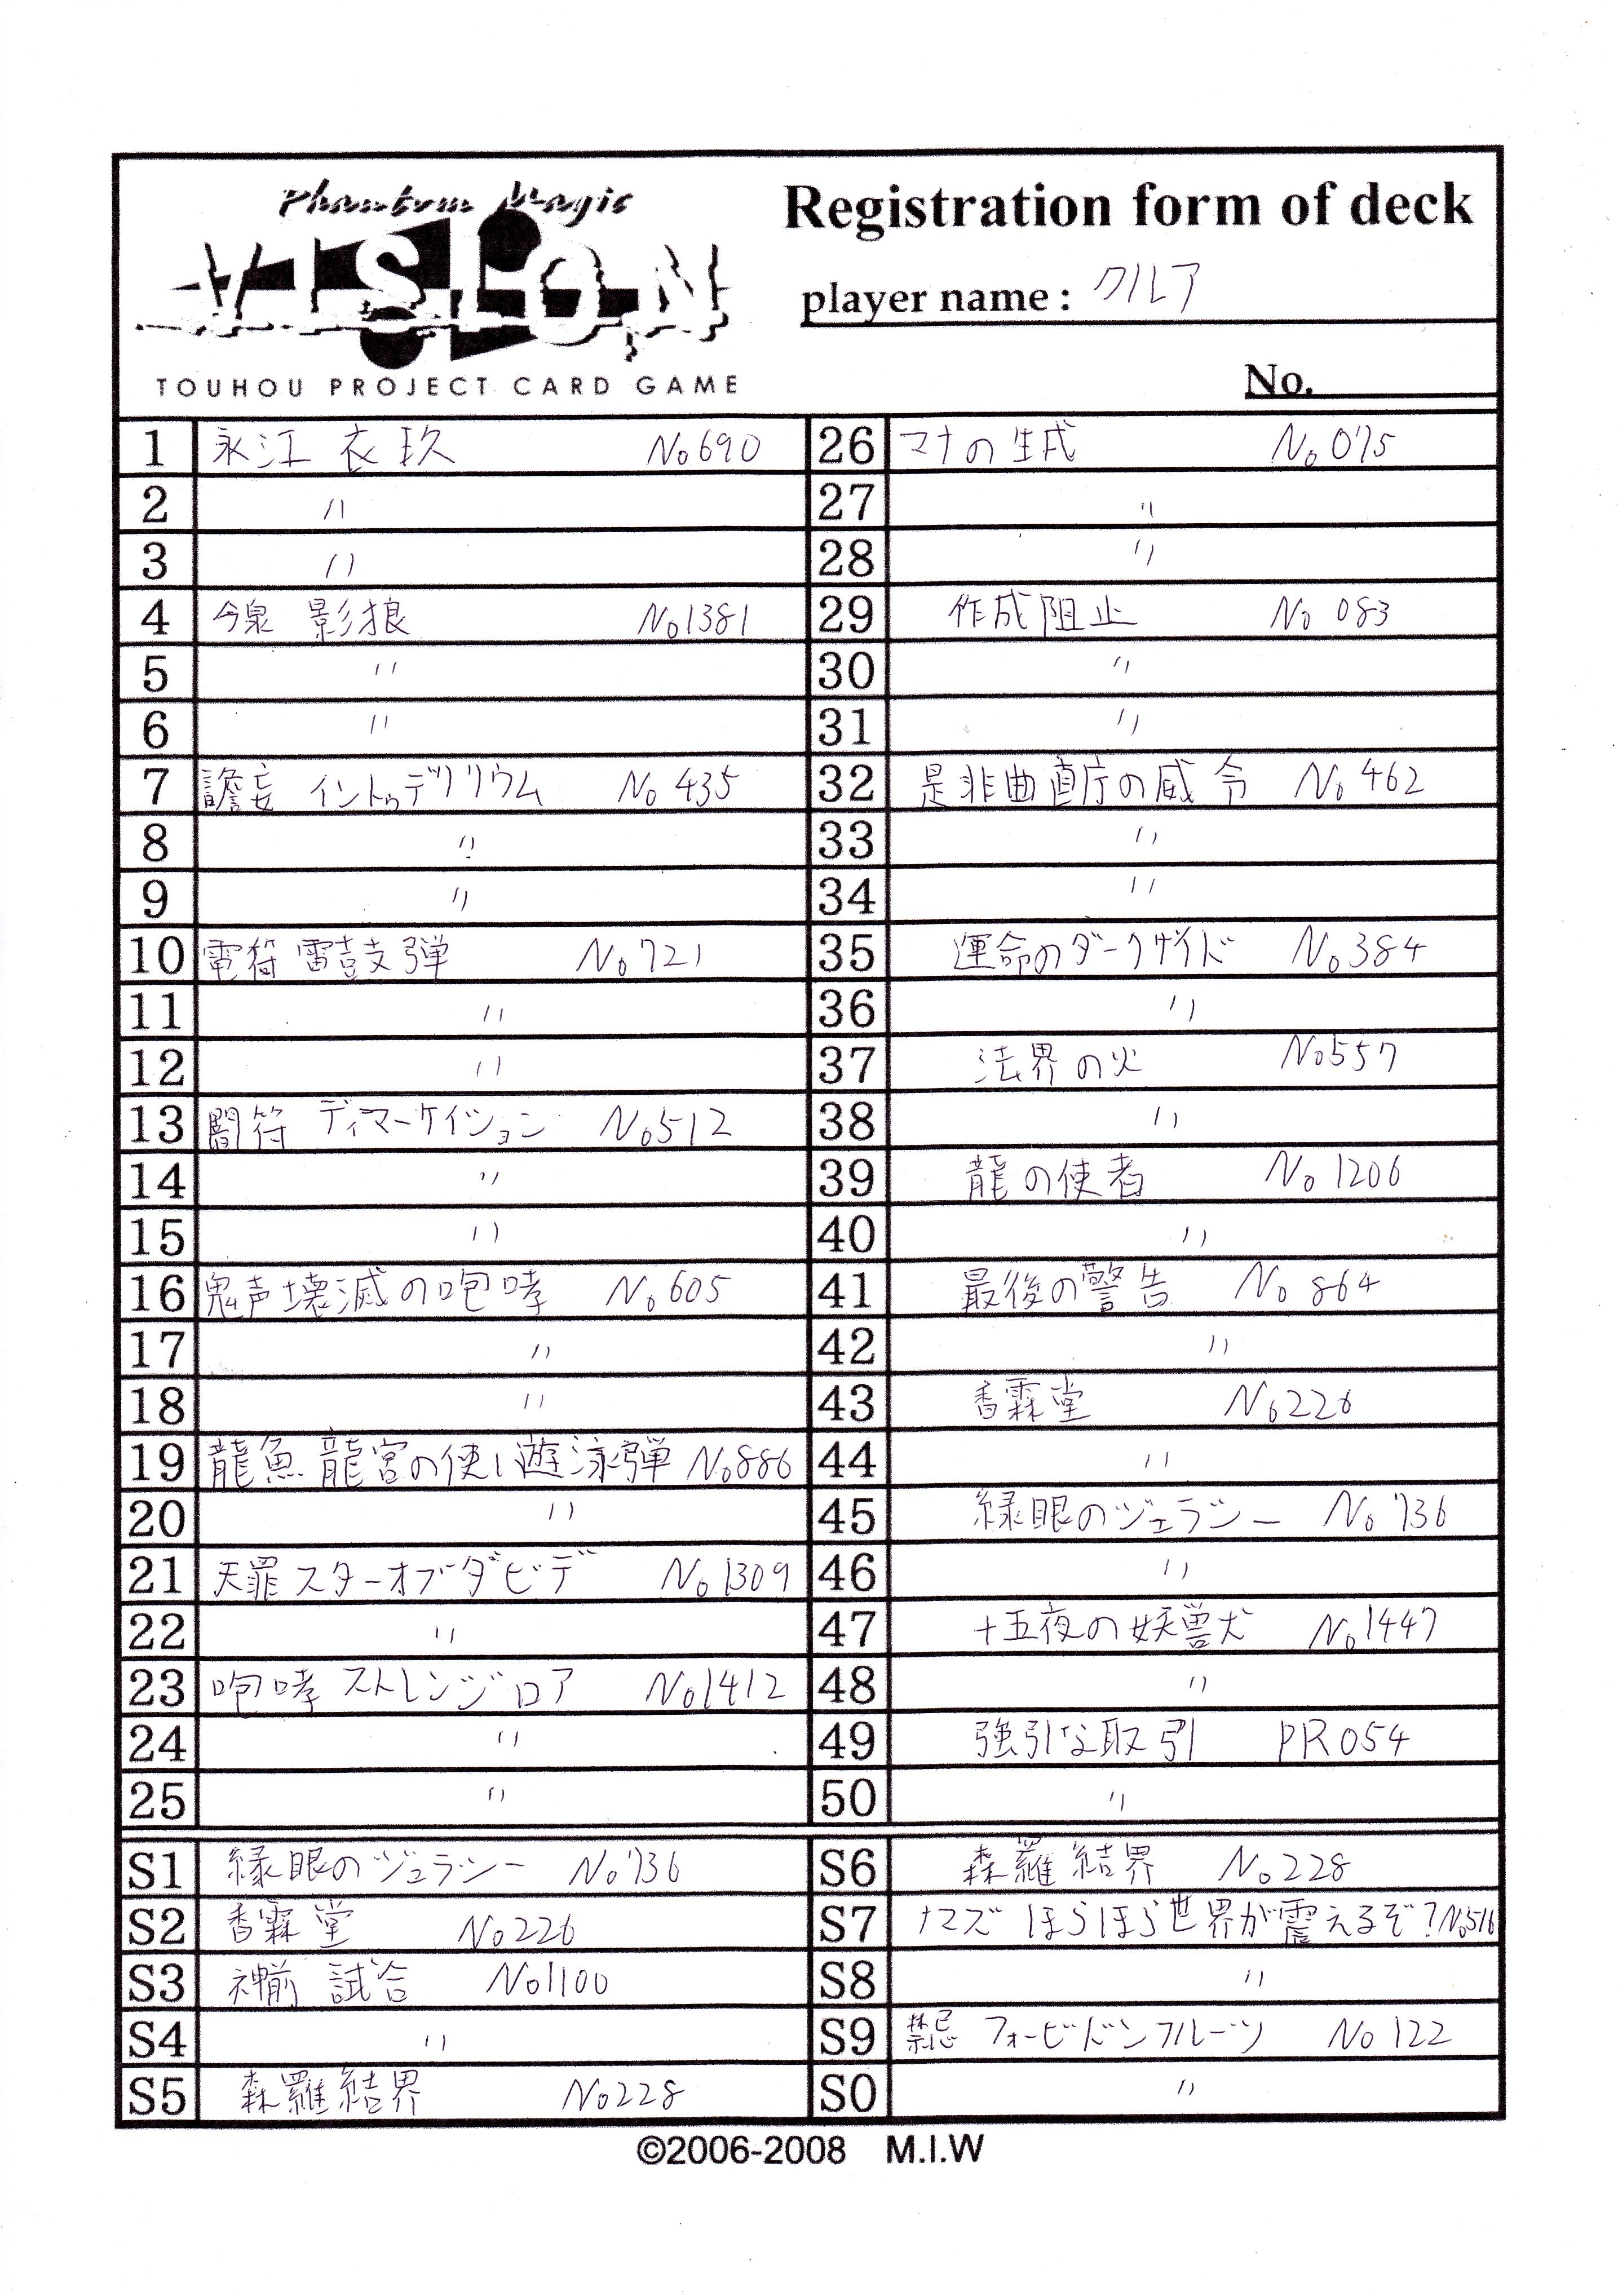 Phantom Magic
VISION
TOUHOU PROJECT CARD GAME
Registration form of deck
player name : クルア
No.
1 永江 衣玖 No690
2 〃
3 〃
4 今泉 影狼 No1381
5 〃
6 〃
7 譫妄 イントゥデリリウム No 435
8 〃
9 〃
10 電符 雷鼓弾 No721
11 〃
12 〃
13 闇符 ディマーケイション No512
14 〃
15 〃
16 鬼声 壊滅の咆哮 No605
17 〃
18 〃
19 龍魚 龍宮の使い遊泳弾 No886
20 〃
21 天罪 スターオブダビデ No1309
22 〃
23 咆哮 ストレンジロア No1412
24 〃
25 〃
26 マナの生成 No 075
27 〃
28 〃
29 作成阻止 No 083
30 〃
31 〃
32 是非曲直庁の威令 No 462
33 〃
34 〃
35 運命のダークサイド No384
36 〃
37 法界の火 No557
38 〃
39 龍の使者 No 1206
40 〃
41 最後の警告 No 864
42 〃
43 香霖堂 No226
44 〃
45 緑眼のジェラシー No 736
46 〃
47 十五夜の妖獣犬 No1447
48 〃
49 強引な取引 PR054
50 〃
S1 緑眼のジェラシー No736
S2 香霖堂 No226
S3 神前 試合 No1100
S4 〃
S5 森羅結界 No228
S6 森羅結界 No228
S7 ナマズ ほらほら世界が震えるぞ?No516
S8 〃
S9 禁忌 フォービドゥンフルーツ No 122
S0 〃
©2006-2008 M.I.W